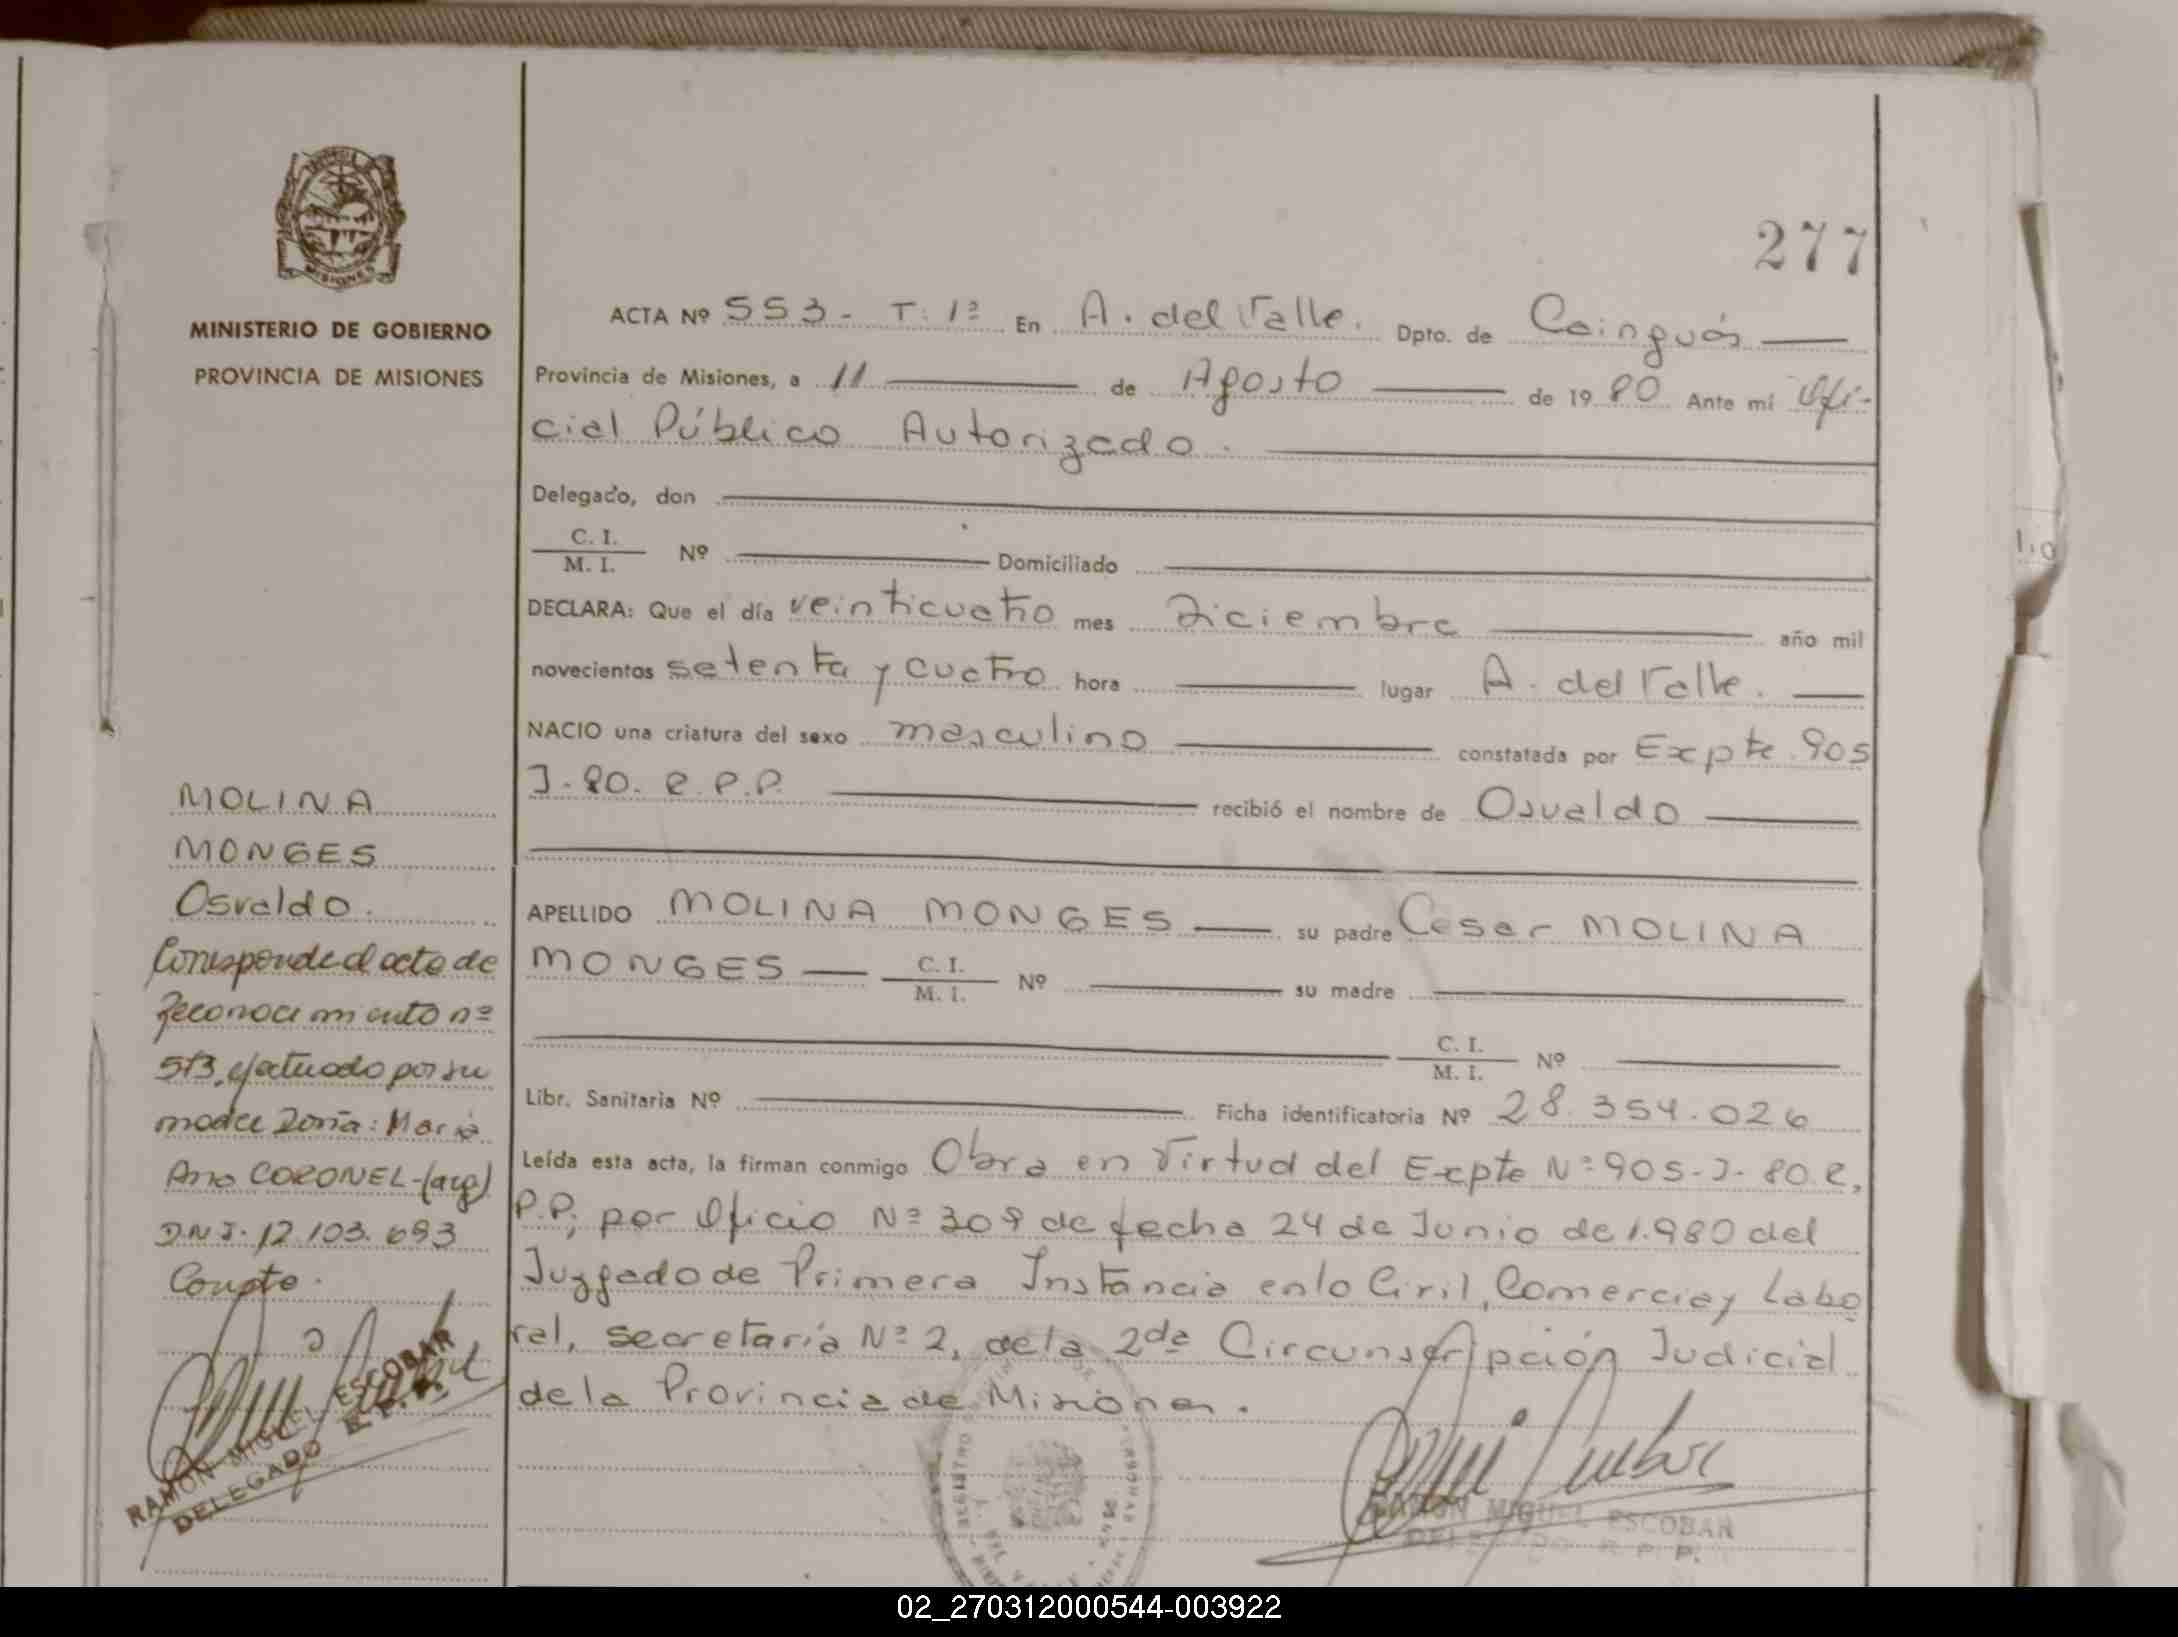 277
MINISTERIO DE GOBIERNO
PROVINCIA DE MISIONES
ACTA Nº 553 - T. 1º En A. del Valle. Dpto. de Cainguás
Provincia de Misiones, a 11 de Agosto de 1980 Ante mí Ofi-
cial Público Autorizado.
Delegado, don
C. I.
M. I. Nº Domiciliado
DECLARA: Que el día veinticuatro mes Diciembre año mil
novecientos setenta y cuatro hora lugar A. del Valle.
NACIO una criatura del sexo masculino constatada por Expte. 905
J-80. R.P.P. recibió el nombre de Osvaldo
APELLIDO MOLINA MONGES su padre Cesar MOLINA
MONGES C. I.
M. I. Nº su madre
C. I.
M. I. Nº
Libr. Sanitaria Nº Ficha identificatoria Nº 28.354.026
Leída esta acta, la firman conmigo Obra en Virtud del Expte Nº 905-J-80.R.
P.P; por Oficio Nº 309 de fecha 24 de Junio de 1.980 del
Juzgado de Primera Instancia en lo Civil, Comercia y Labo
ral, secretaría Nº 2, de la 2da Circunscripción Judicial
de la Provincia de Misiones.
RAMON MIGUEL ESCOBAR
DELEGADO R. P. P.
MOLINA
MONGES
Osvaldo.
Corresponde al acta de
Reconocimiento nº
573, efectuado por su
madre Doña: María
Ana CORONEL-(arg)
DNI. 12.103.693
Conste.
RAMON MIGUEL ESCOBAR
DELEGADO R. P. P.
02_270312000544-003922